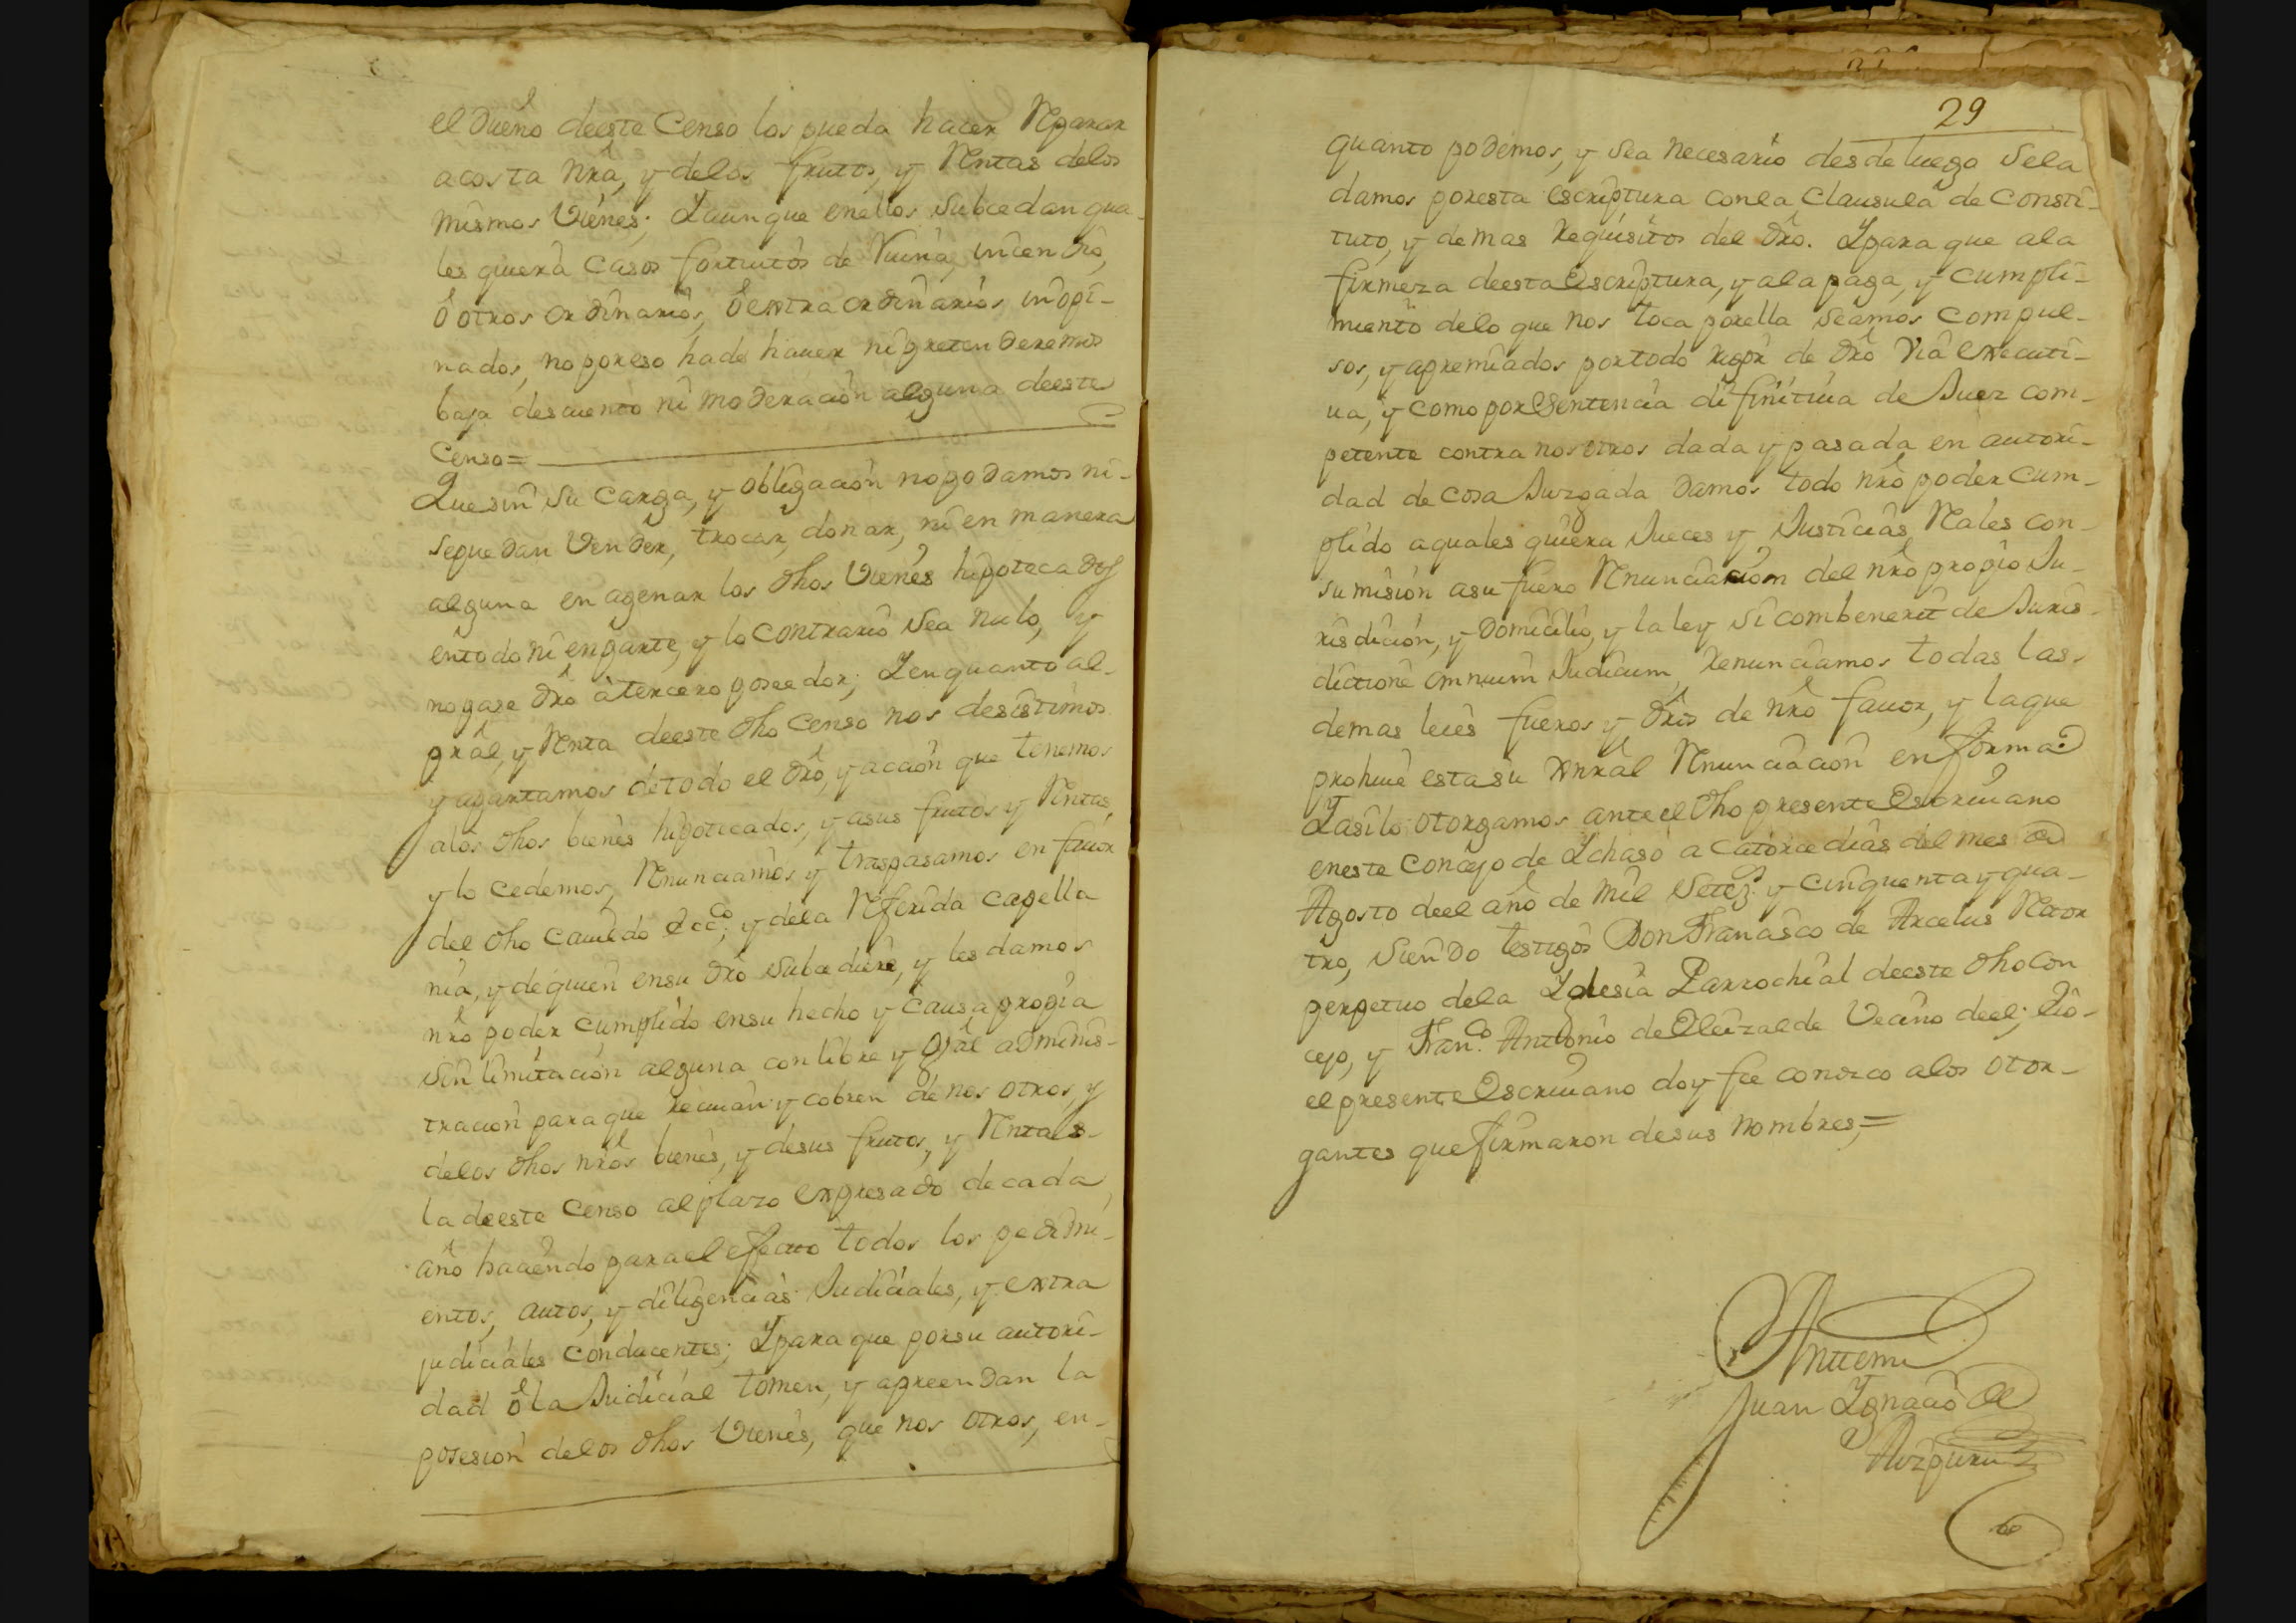 el Dueño deeste Censo los pueda hacer Reparar
acosta nra, y delos frutos, y Rentas delos
mismos Vienes; Yaunque enellos Subcedan qua-
les quiera Casos fortuitos de Ruina, incendio,
ô otros ordinarios, ô extraordinarios, inopi-
nados, noporeso hade hauer ni pretenderemos
baja descuento ni moderacion alguna deeste
Censo=
Quesin su Carga, y obligacion nopodamos ni-
sepuedan Vender, trocar, donar, ni en manera
alguna enagenar los dhos Vienes hipotecados
entodo ni enparte, y lo contrario sea nulo, y
nopase dro à tercero poseedor; Yenquanto al-
pral, y Renta deeste dho Censo nos desistimos
y apartamos detodo el dro, y accion que tenemos
alos dhos bienes hipotecados, y asus frutos y Rentas,
y lo cedemos, Renunciamos y traspasamos en fauor
del dho cauildo Ecco; y dela Referida capella
nia, y dequien ensu dro Subcediere, y les damos
nro poder cumplido ensu hecho y causa propia
sin limitacion alguna con libre y gral adminis-
tracion paraque reciuan y cobren de nos otros, y
delos dhos nros bienes, y desus frutos, y Rentas-
la deeste Censo alplazo expresado de cada
año haciendo parael effecto todos los pedimi-
entos, autos, y diligencias Judiciales, y extra
judiciales conducentes; Ypara que porsu autori-
dad ô la Judicial tomen, y apreendan la
posesion delos dhos Vienes, que nos otros, en-
29
quanto podemos, y sea necesario desde luego Sela
damos poresta escriptura conla Clausula de Consti-
tuto, y demas requisitos del dro. Ypara que ala
firmeza deesta Escriptura, y ala paga, y cumpli-
miento delo que nos toca porella seamos compul-
sos, y apremiados portodo rigor de dro Via executi-
ua, y como por Sentencia difinitiua de Juez com-
petente contra nosotros dada y pasada en autori-
dad de cosa Juzgada damos todo nro poder Cum-
plido aquales quiera Jueces y Justicias Reales con-
sumision asu fuero Renunciacion del nro propio Ju-
risdicion, y Domicilio, y la ley si combenerit de Juris-
dictione omnium Judicum, renunciamos todas las
demas leies fueros y dros de nro fauor, y laque
prohiue estasu xnral Renunciacion enforma
Yasilo otorgamos anteel dho presente Escriuano
eneste Concejo de Ychaso a Catorce dias del mes de
Agosto deel año de mil Setez.s y Cinquentayqua-
tro, siendo testigos Don Francisco de Arcelus Rector
perpetuo dela Yglesia Parrochial deeste dho Con
cejo, y Fran.co Antonio de Elizalde Vecino deel; Eio-
el presente Escriuano doy fee conozco alos otor-
gantes quefirmaron desus nombres,=
Anttemi
Juan Ygnacio de
Aizpuru